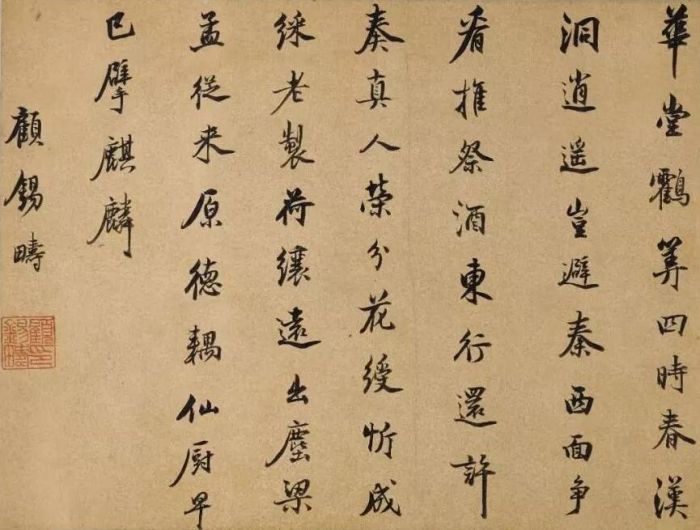 華堂鸖筭四時春漢
洞逍遥豈避秦西面争
肴推祭酒東行還許
奏真人榮分花綬忻成
綵老製荷纕遠出塵梁
孟從来原德耦仙厨早
已擘麒麟
顧錫疇